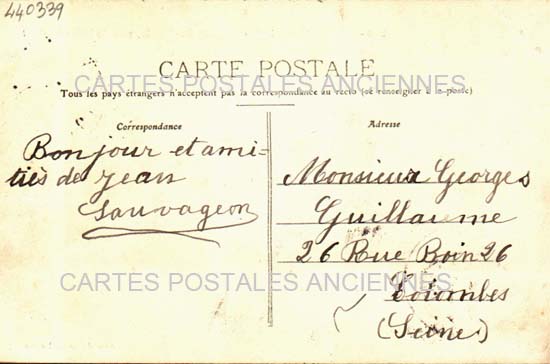 440339
CARTE POSTALE
CARTES POSTALES ANCIENNES
Tous les pays étrangers n'acceptent pas la correspondance au recto (se renseigner à la poste)
Correspondance
Bonjour et ami-
tiés de Jean
Sauvageon
Adresse
Monsieur Georges
Guillaume
26 Rue Boin 26
Colombes
(Seine)
CARTES POSTALES ANCIENNES